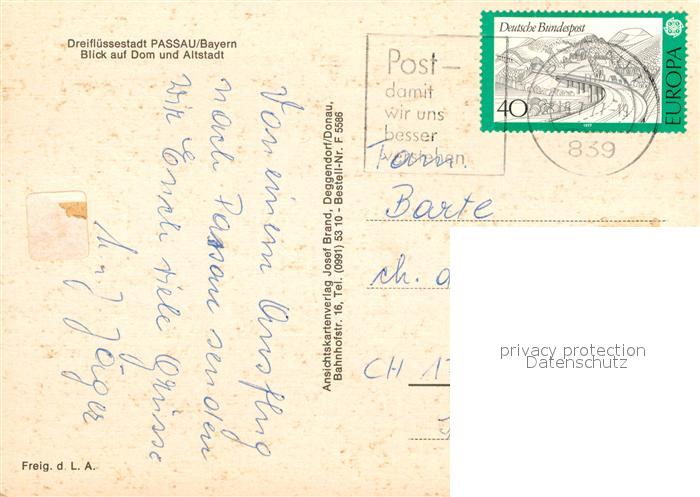 Dreiflüssestadt PASSAU/Bayern
Blick auf Dom und Altstadt
Von einem Ausflug
nach Passau senden
wir Euch viele Grüsse
Jäger
Freig. d. L. A.
Ansichtskartenverlag Josef Brand, Deggendorf/Donau,
Bahnhofstr. 16, Tel. (0991) 53 10 - Bestell-Nr. F 5586
Post-
damit
wir uns
besser
verstehen
Deutsche Bundespost
40
EUROPA
1977
839
Fam.
Barte
ch. d
CH 17
privacy protection
Datenschutz